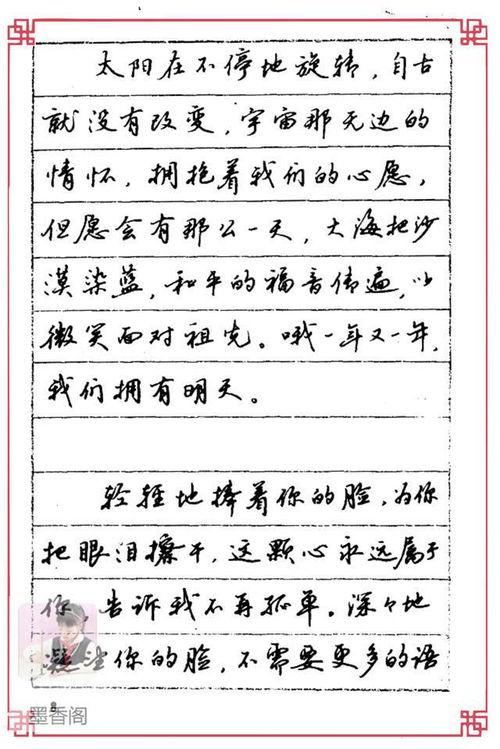 太阳在不停地旋转，自古
就没有改变，宇宙那无边的
情怀，拥抱着我们的心愿，
但愿会有那么一天，大海把沙
漠染蓝，和平的福音传遍，以
微笑面对祖先。哦一年又一年，
我们拥有明天。
轻轻地捧着你的脸，为你
把眼泪擦干，这颗心永远属于
你，告诉我不再孤单。深々地
凝望你的脸，不需要更多的语
8
墨香阁